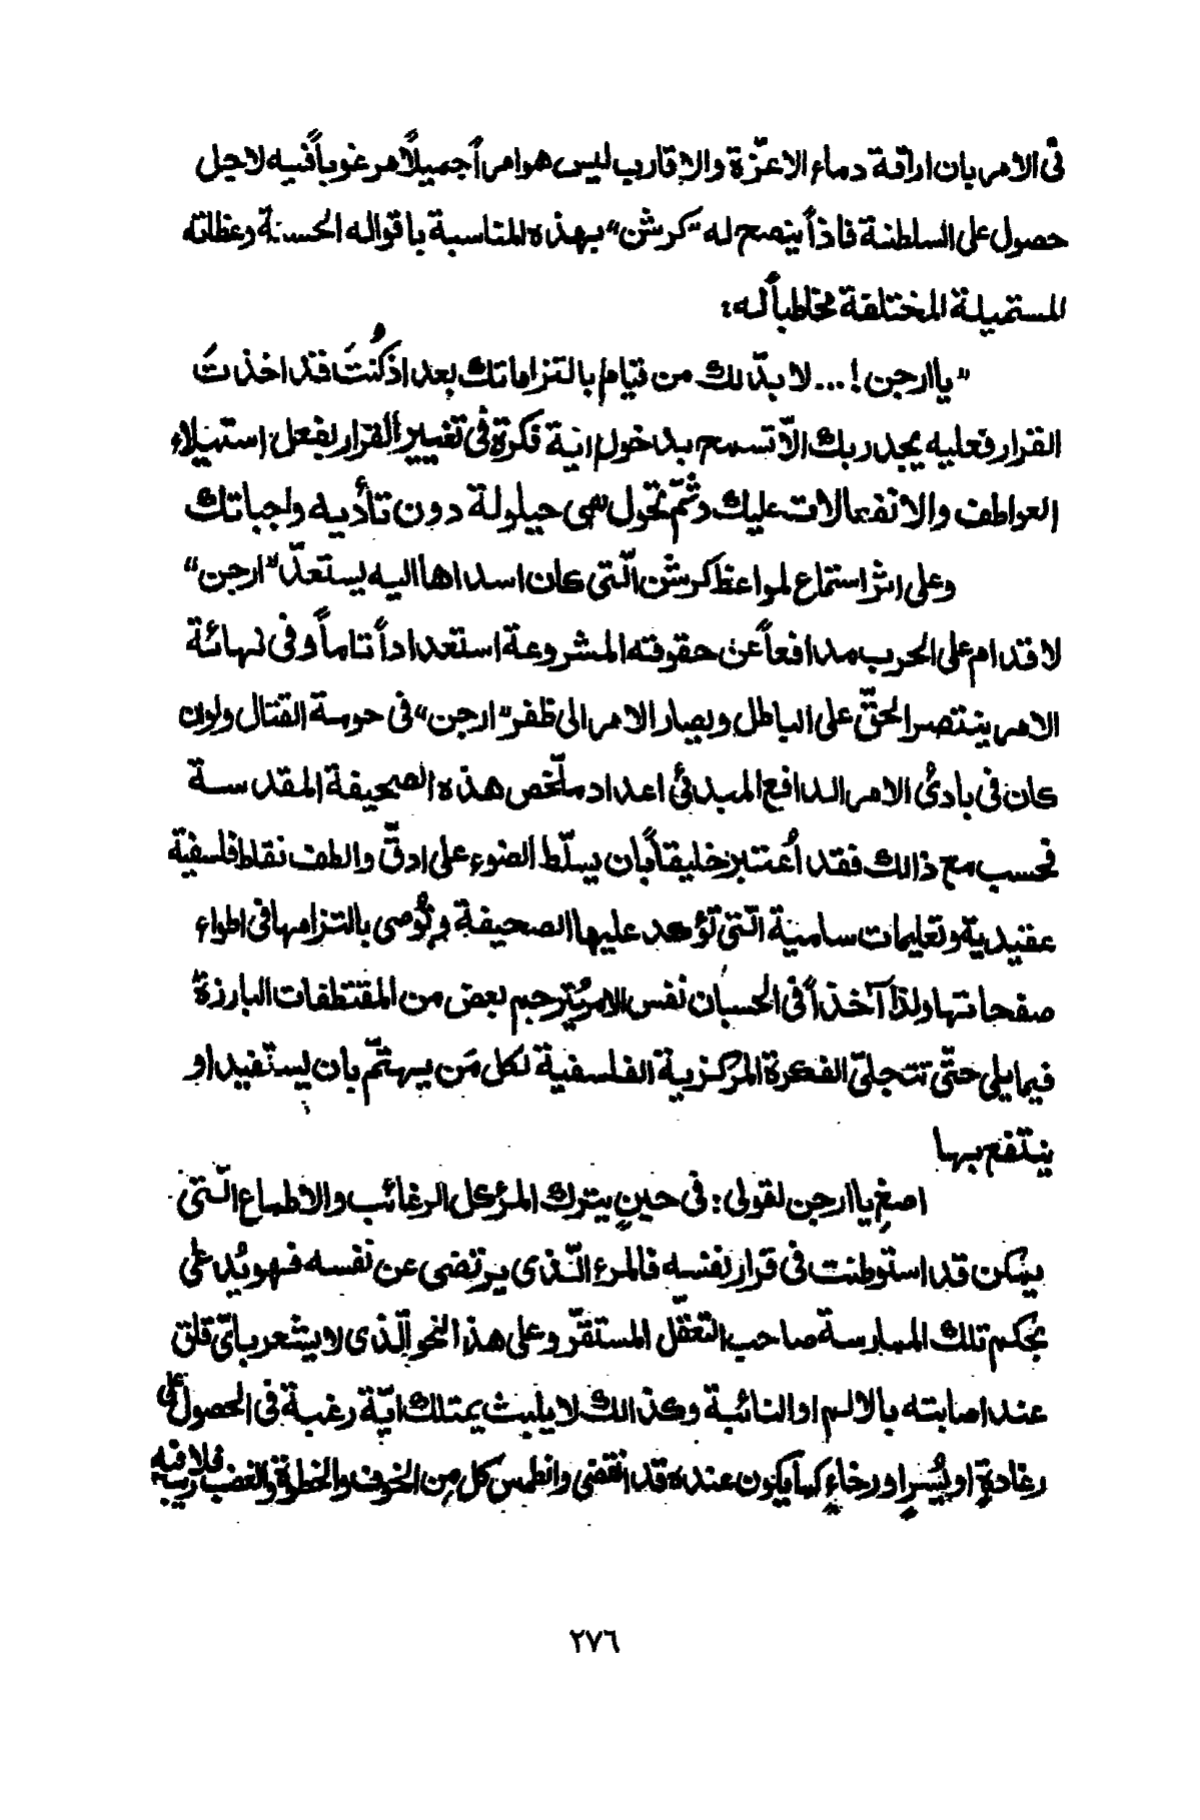 فى الامر بان اراقة دماء الاعزّة والاقارب ليس هوامراً جميلاً مرغوباً فيه لاجل
حصول على السلطنة فاذاً ينصح له "كرشن" بهذه المناسبة باقواله الحسنة وعظاته
المستميلة المختلفة مخاطباً له:
"يا ارجن! ... لا بدّ لك من قيام بالتزاماتك بعد اذ كُنتَ قد اخذتَ
القرار فعليه يجدر بك الاّ تسمح بدخول اية فكرة فى تغيير القرار بفعل استيلاء
العواطف والانفعالات عليك وثمّ تحول هى حيلولة دون تأديه واجباتك
وعلى اثر استماع لمواعظ كرشن الّتى كان اسداها اليه يستعدّ "ارجن"
لاقدام على الحرب مدافعاً عن حقوقه المشروعة استعداداً تاماً وفى نهائة
الامر ينتصر الحقّ على الباطل ويصار الامر الى ظفر "ارجن" فى حومة القتال ولون
كان فى بادئ الامر الدافع المبدئى اعداد ملّخص هذه الصحيفة المقدسة
فحسب مع ذالك فقد اُعتبر خليقاً بان يسلّط الضوء على ادقّ والطف نقاط فلسفية
عقيدية وتعليمات سامية الّتى تؤكد عليها الصحيفة وتُوصى بالتزامها فى اطواء
صفحاتها ولذا آخذاً فى الحسبان نفس الامر يُترجم بعض من المقتطفات البارزة
فيما يلى حتّى تتجلىّ الفكرة المركزية الفلسفية لكل مَن يهتمّ بان يستفيد او
ينتفع بها
اصغِ يا ارجن لقولى: فى حينٍ يترك المرء كل الرغائب والاطماع الّتى
يمكن قد استوطنت فى قرار نفسه فالمرء الّذى يرتضى عن نفسه فهو يُدعى
بحكم تلك الممارسة صاحب التعقّل المستقرّ وعلى هذا النحو الّذى لا يشعر باىّ قلق
عند اصابته بالالم او النائبة وكذالك لا يلبث يمتلك ايّة رغبة فى الحصول على
رغادةٍ او يُسرٍ او رخاءٍ كما يكون عنده قد انقضى وانطمس كل من الخوف والخطرة والغضب فلا ريب فيه
٢٧٦